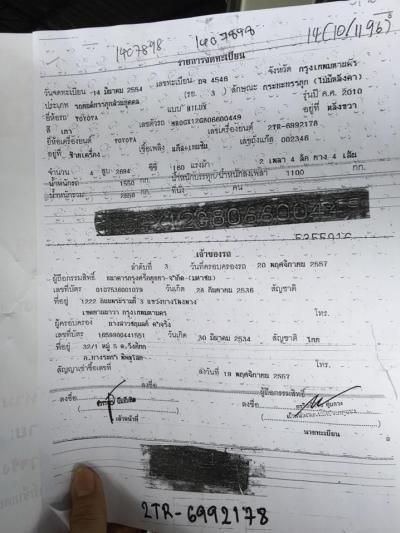 1407898 1407898 14(10/1196)
รายการจดทะเบียน
วันจดทะเบียน 14 มีนาคม 2554 เลขทะเบียน กจ 4546 จังหวัด กรุงเทพมหานคร
ประเภท รถยนต์บรรทุกส่วนบุคคล (รย. 3 ) ลักษณะ กระบะบรรทุก (ไม่มีหลังคา)
ยี่ห้อรถ TOYOTA แบบ HILUX รุ่นปี ค.ศ. 2010
สี เทา เลขตัวรถ อยู่ที่
ยี่ห้อเครื่องยนต์ TOYOTA เลขเครื่องยนต์ 2TR-6992178
อยู่ที่ ซ้ายเครื่อง เชื้อเพลิง เลขถังแก๊ส 002346
จำนวน 4 สูบ 2694 ซีซี 160 แรงม้า 2 เพลา 4 ล้อ ยาง 4 เส้น
น้ำหนักรถ 1550 กก. น้ำหนักบรรทุก/น้ำหนักลงเพลา 1100 กก.
น้ำหนักรวม 2650 กก. ที่นั่ง คน
เจ้าของรถ
ลำดับที่ 3 วันที่ครอบครองรถ 20 พฤศจิกายน 2557
ผู้ถือกรรมสิทธิ์ ธนาคารกรุงศรีอยุธยา จำกัด (มหาชน)
เลขที่บัตร 0107536001079 วันเกิด 28 กันยายน 2536 สัญชาติ
ที่อยู่ 1222 ถนนพระรามที่ 3 แขวงบางโพงพาง
เขตยานนาวา กรุงเทพมหานคร โทร.
ผู้ครอบครอง
เลขที่บัตร วันเกิด 30 มีนาคม 2534 สัญชาติ ไทย
ที่อยู่ 32/1 หมู่ 5 ต.วังอิทก
อ.บางระกำ พิษณุโลก โทร.
สัญญาเช่าซื้อเลขที่ ลงวันที่ 19 พฤศจิกายน 2557
ลงชื่อ ผู้ถือกรรมสิทธิ์
ลงชื่อ ลงชื่อ
เจ้าหน้าที่
นายทะเบียน
2TR-6992178